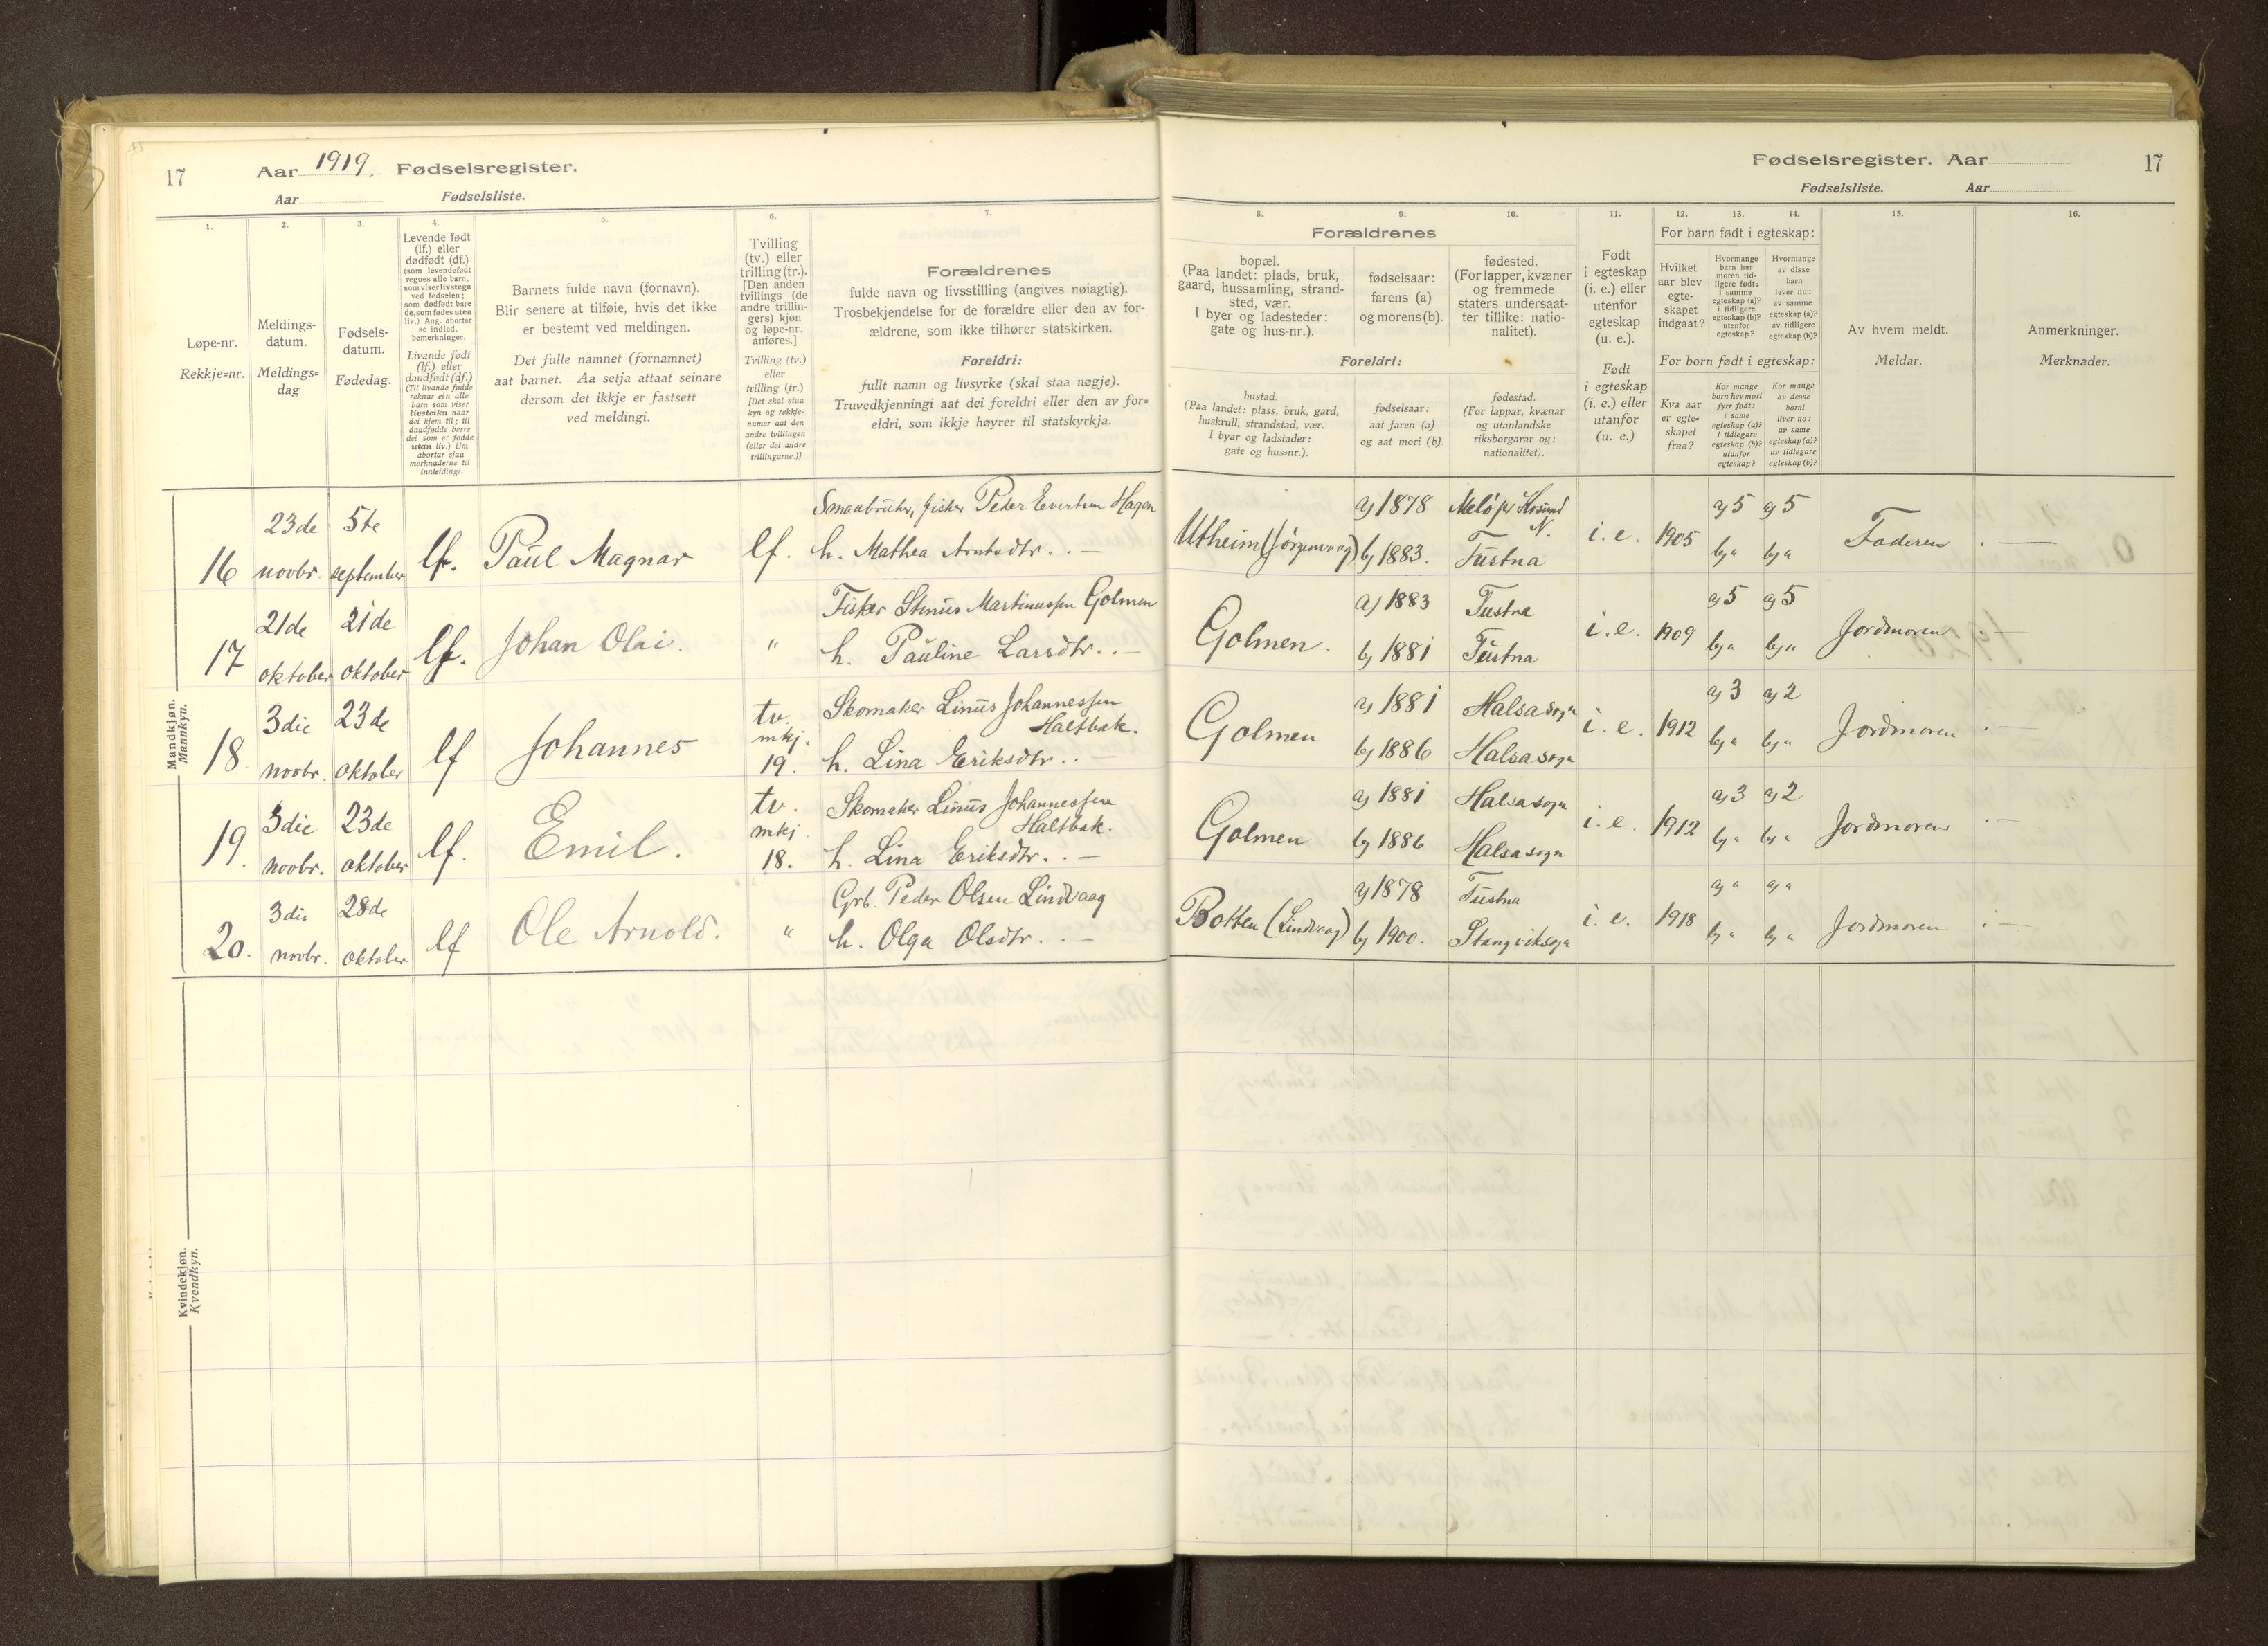 17 Aar 1919. Fødselsregister.
Aar Fødselsliste.
1. 2. 3. 4. 5. 6. 7.
Løpe-nr.
Rekkje=nr.
Meldings-
datum.
Meldings=
dag
Fødsels-
datum.
Fødedag.
Levende født
(lf.) eller
dødfødt (df.)
(som levendefødt
regnes alle barn,
som viser livstegn
ved fødselen;
som dødfødt bare
de, som fødes uten
liv.) Ang. aborter
se indled.
bemerkninger.
Livande født
(lf.) eller
daudfødt (df.)
(Til livande fødde
reknar ein alle
barn som viser
livsteikn naar
dei kjem til; til
daudfødde berre
dei som er fødde
utan liv.) Um
abortar sjaa
merknaderne til
innleidingi.
Barnets fulde navn (fornavn).
Blir senere at tilføie, hvis det ikke
er bestemt ved meldingen.
Det fulle namnet (fornamnet)
aat barnet. Aa setja attaat seinare
dersom det ikkje er fastsett
ved meldingi.
Tvilling
(tv.) eller
trilling (tr.).
[Den anden
tvillings (de
andre trillin-
gers) kjøn
og løpe-nr.
anføres.]
Tvilling (tv.)
eller
trilling (tr.)
[Det skal staa
kyn og rekkje-
numer aat den
andre tvillingen
(eller dei andre
trillingarne.)]
Forældrenes
fulde navn og livsstilling (angives nøiagtig).
Trosbekjendelse for de forældre eller den av for-
ældrene, som ikke tilhører statskirken.
Foreldri:
fullt namn og livsyrke (skal staa nøgje).
Truvedkjenningi aat dei foreldri eller den av for=
eldri, som ikkje høyrer til statskyrkja.
Mandkjøn.
Mannkyn.
16 23de novbr. 5te september lf. Paul Magnar lf. Smaabruker, fisker Peder Evertsen Hagen
h. Mathea Arntsdtr. . —
17 21de oktober 21de oktober lf. Johan Olai. " Fisker Stinus Martinussen Golmen
h. Pauline Larsdtr. . —
18 3die novbr. 23de oktober lf Johannes tv. mkj. 19. Skomaker Linus Johannessen
Haltbak.
h. Lina Eriksdtr. . —
19. 3die novbr. 23de oktober lf. Emil. tv. mkj. 18. Skomaker Linus Johannessen
Haltbak.
h. Lina Eriksdtr. . —
20. 3die novbr. 28de oktober lf Ole Arnold. " Grb. Peder Olsen Lindvaag
h. Olga Olsdtr. . —
Kvindekjøn.
Kvendkyn.
Fødselsregister. Aar 17
Fødselsliste. Aar
8. 9. 10. 11. 12. 13. 14. 15. 16.
Forældrenes
bopæl.
(Paa landet: plads, bruk,
gaard, hussamling, strand-
sted, vær.
I byer og ladesteder:
gate og hus-nr.).
fødselsaar:
farens (a)
og morens (b).
fødested.
(For lapper, kvæner
og fremmede
staters undersaat-
ter tillike: natio-
nalitet).
Foreldri:
bustad.
(Paa landet: plass, bruk, gard,
huskrull, strandstad, vær.
I byar og ladstader:
gate og hus=nr.).
fødselsaar:
aat faren (a)
og aat mori (b).
fødestad.
(For lappar, kvænar
og utanlandske
riksborgarar og:
nationalitet).
Født
i egteskap
(i. e.) eller
utenfor
egteskap
(u. e.).
Født
i egteskap
(i. e.) eller
utanfor
(u. e.)
For barn født i egteskap:
Hvilket
aar blev
egte-
skapet
indgaat?
Hvormange
barn har
moren tid-
ligere født:
i samme
egteskap (a)?
i tidligere
egteskap (b)?
utenfor
egteskap?
Hvormange
av disse
barn
lever nu:
av samme
egteskap (a)?
av tidligere
egteskap (b)?
For born født i egteskap:
Kva aar
er egte=
skapet
fraa?
Kor mange
born hev mori
fyrr født:
i same
egteskap (a)?
i tidlegare
egteskap (b)?
utanfor
egteskap?
Kor mange
av desse
borni
liver no:
av same
egteskap (a)?
av tidlegare
egteskap (b)?
Av hvem meldt.
Meldar.
Anmerkninger.
Merknader.
Utheim (Jørgenvaag) a) 1878 b) 1883. Melø pr Krsund N. Tustna i. e. 1905 a) 5 b) " a) 5 b) " Faderen . —
Golmen. a) 1883 b) 1881 Tustna Tustna i. e. 1909 a) 5 b) " a) 5 b) " Jordmoren . —
Golmen a) 1881 b) 1886 Halsa sogn Halsa sogn i. e. 1912 a) 3 b) " a) 2 b) " Jordmoren . —
Golmen a) 1881 b) 1886 Halsa sogn Halsa sogn i. e. 1912 a) 3 b) " a) 2 b) " Jordmoren . —
Botten (Lindvaag) a) 1878 b) 1900. Tustna Stangviksogn i. e. 1918 a) " b) " a) " b) " Jordmoren . —